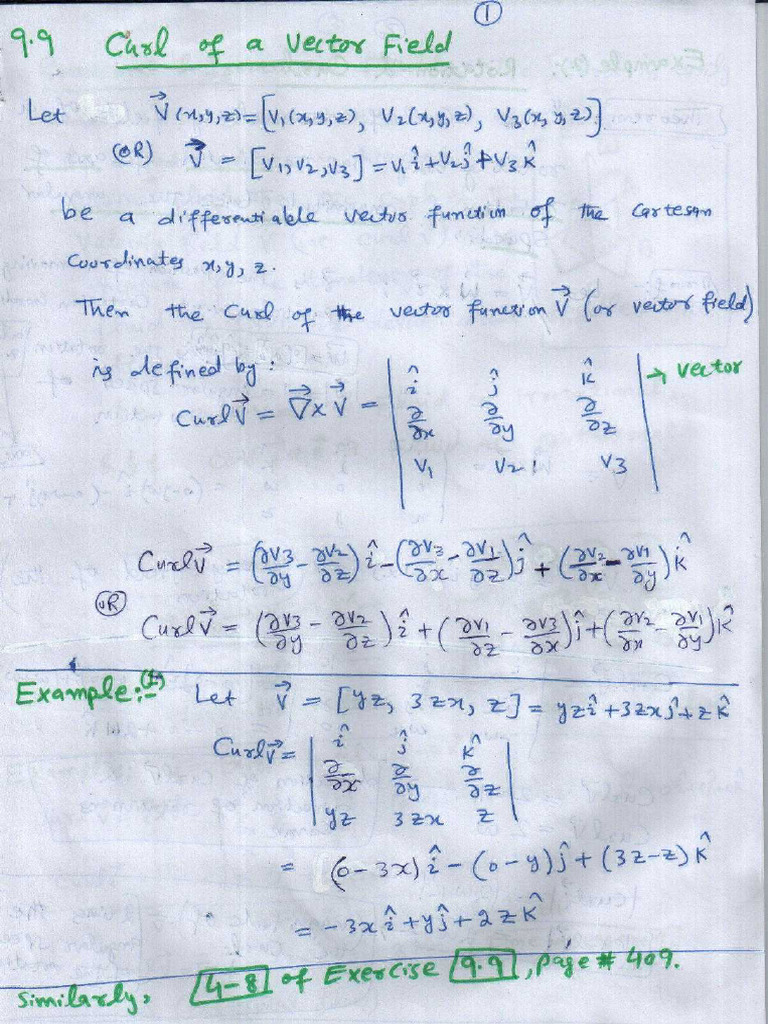 ①
9.9 Curl of a Vector Field
Let V⃗(x,y,z)=[V₁(x,y,z), V₂(x,y,z), V₃(x,y,z)]
(OR) V⃗ = [V₁,V₂,V₃] = V₁î+V₂ĵ+V₃k̂
be a differentiable vector function of the Cartesan
Coordinates x, y, z.
Then the Curl of the vector function V⃗ (or vector field)
is defined by:
Curl V⃗ = ∇⃗ x V⃗ = | î ĵ k̂ | → vector
| ∂/∂x ∂/∂y ∂/∂z |
| V₁ V₂ V₃ |
Curl V⃗ = (∂V₃/∂y - ∂V₂/∂z) î - (∂V₃/∂x - ∂V₁/∂z) ĵ + (∂V₂/∂x - ∂V₁/∂y) k̂
(OR)
Curl V⃗ = (∂V₃/∂y - ∂V₂/∂z) î + (∂V₁/∂z - ∂V₃/∂x) ĵ + (∂V₂/∂x - ∂V₁/∂y) k̂
Example:-(1) Let V⃗ = [yz, 3zx, z] = yzî+3zxĵ+zk̂
Curl V⃗ = | î ĵ k̂ |
| ∂/∂x ∂/∂y ∂/∂z |
| yz 3zx z |
= (0-3x) î - (0-y) ĵ + (3z-z) k̂
= -3xî + yĵ + 2zk̂
Similarly, 4-8 of Exercise 9.9, Page # 409.